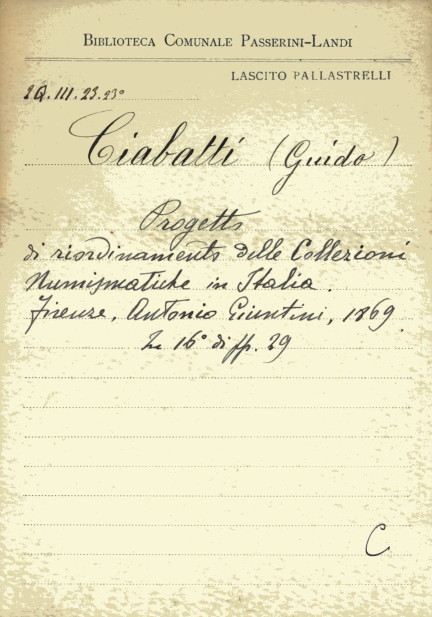 BIBLIOTECA COMUNALE PASSERINI-LANDI
LASCITO PALLASTRELLI
2Q.III.23.23°
Ciabatti (Guido)
Progetto
di riordinamento delle Collezioni
Numismatiche in Italia.
Firenze, Antonio Giuntini, 1869.
In 16° di pp. 29
C